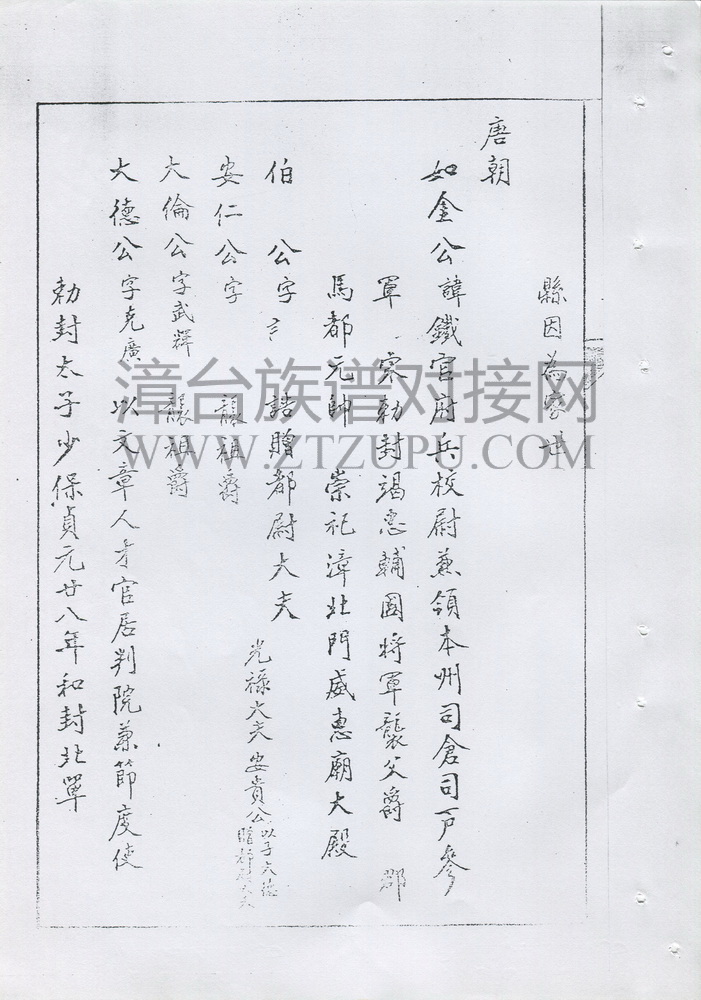 縣因為
唐朝
如金公諱鐵官府兵校尉兼領本州司倉司戶參
軍 宋勅封竭忠輔國將軍襲父爵 郡
馬都元帥 崇祀漳北門威惠廟大殿
伯 公字 誥贈都尉大夫
光祿大夫安貴公以子大德
贈都尉大夫
安仁公字 襲祖爵
大倫公字武輝 襲祖爵
大德公字克廣 以文章人才官居判院兼節度使
勅封太子少保貞元廿八年和封北單
漳台族谱对接网
WWW.ZTZUPU.COM